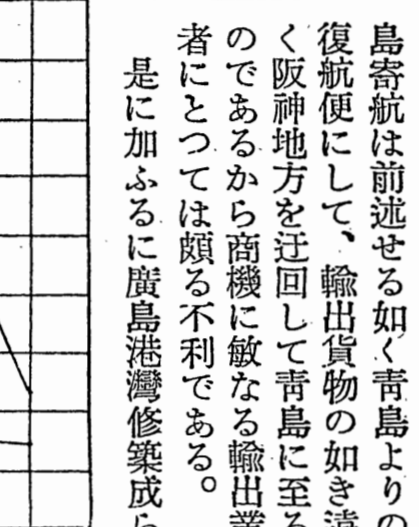 島寄航は前述せる如く靑島よりの
復航便にして、輸出貨物の如き遠
く阪神地方を迂回して靑島に至る
のであるから商機に敏なる輸出業
者にとつては頗る不利である。
是に加ふるに廣島港灣修築成ら